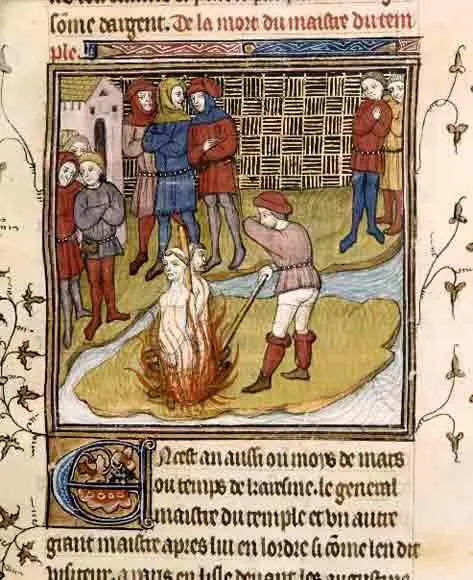 sõme dargent. De la mort du maistre du tem
ple.
En cest an aussi ou moys de mars
ou temps de karesme. le general
maistre du temple et vn autre
grant maistre apres lui en lordre si cõme len dit
visiteur. a paris en lisle deuant les augustins